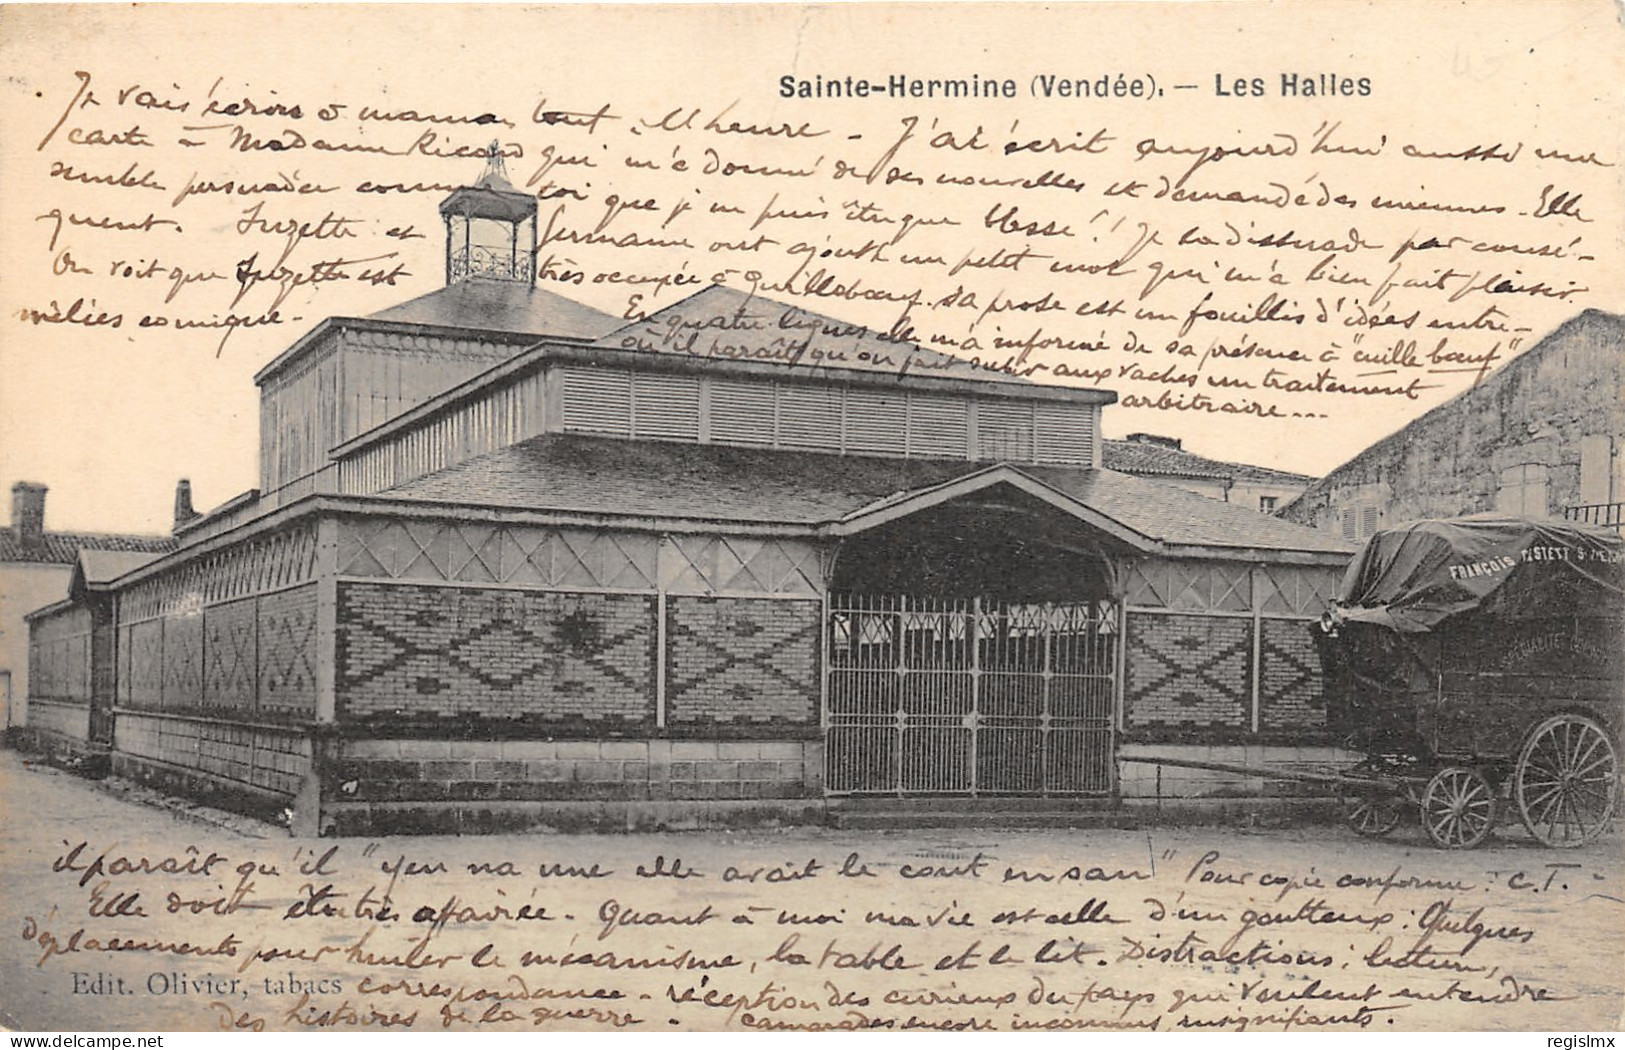 Sainte-Hermine (Vendée). — Les Halles
Je vais écrire à maman tout à l'heure - J'ai écrit aujourd'hui aussi une
carte à Madame Ricard qui m'a donné de ses nouvelles et demandé des miennes - Elle
semble persuadée comme toi que je ne puis être que blessé! Je la dissuade par consé-
quent. Suzette et Germaine ont ajouté un petit mot qui m'a bien fait plaisir.
On voit que Suzette est très occupée à Quilleboeuf. Sa prose est un fouillis d'idées entre-
mêlées comique -
En quatre lignes elle m'a informé de sa présence à "cuille boeuf"
où il paraît qu'on fait subir aux vaches un traitement
arbitraire...
FRANÇOIS
SPÉCIALITÉ
il paraît qu'il "yen na une elle avait le cout en san" Pour copie conforme : C.T. -
Elle doit être très affairée - Quant à moi ma vie est celle d'un goutteux : Quelques
déplacements pour huiler le mécanisme, la table et le lit. Distractions : lecture,
Edit. Olivier, tabacs
correspondance - réception des curieux du pays qui veulent entendre
des histoires de la guerre - camarades encore inconnus, insignifiants.
delcampe.net
regislmx